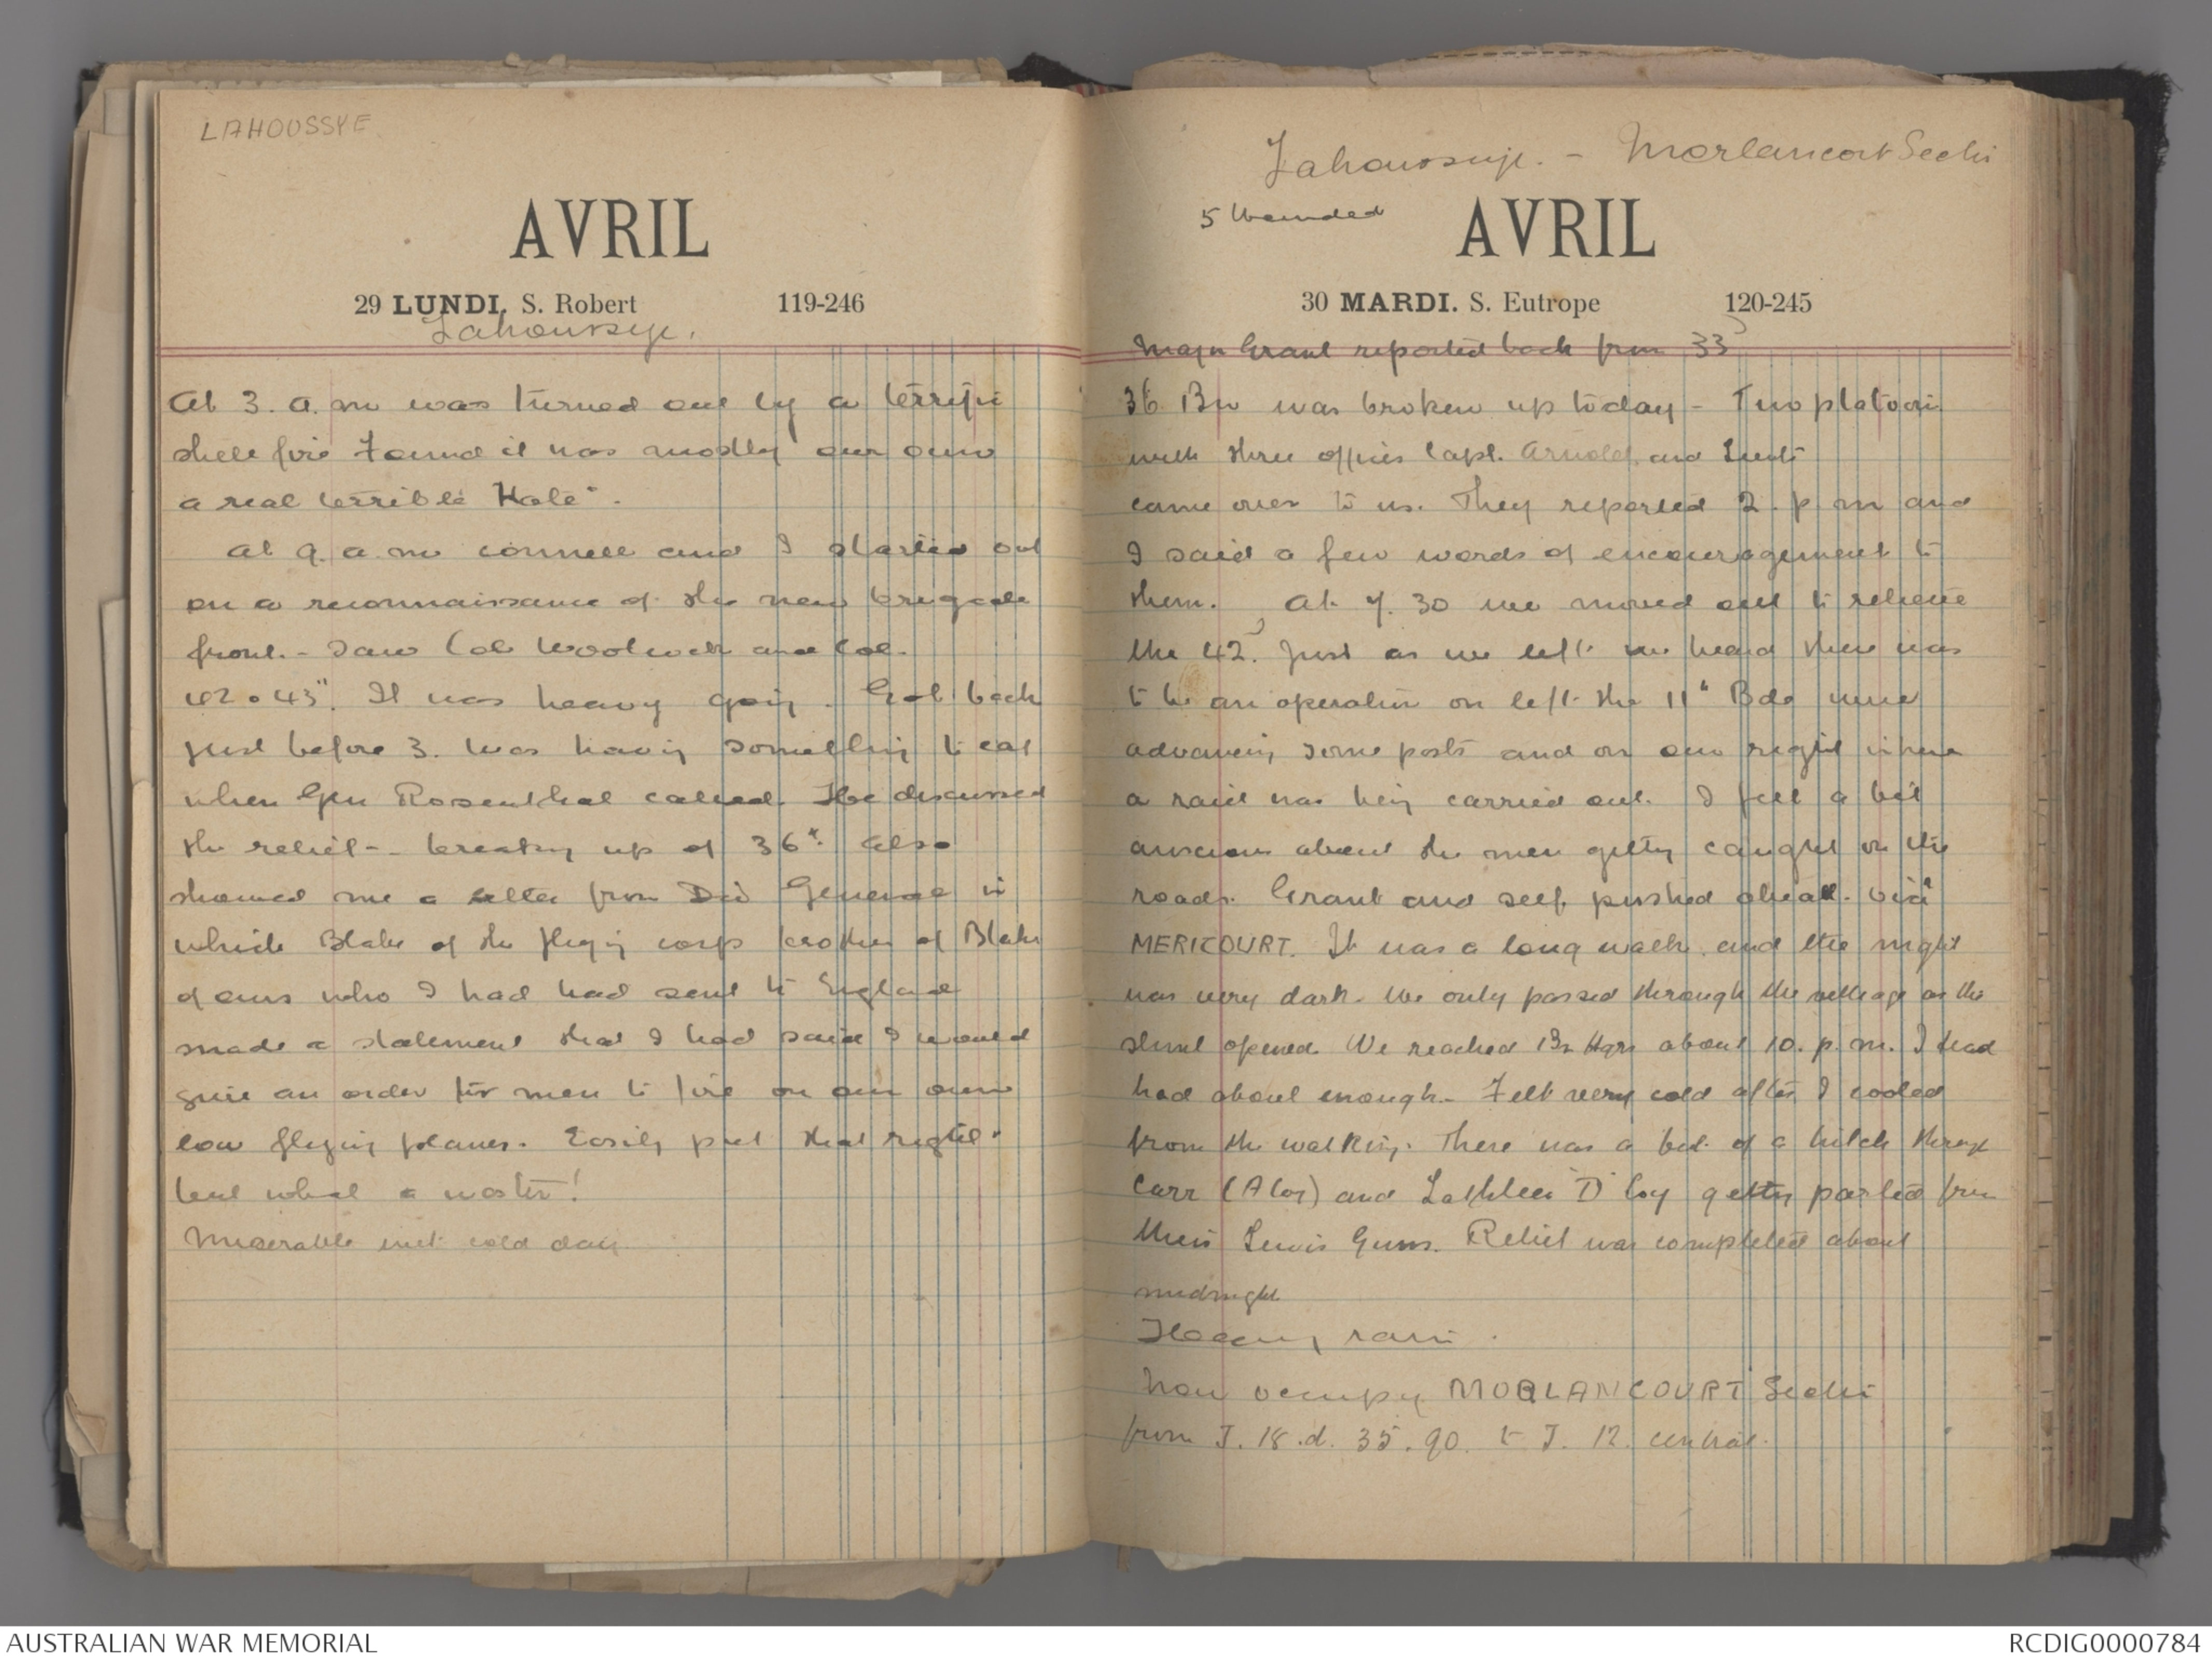 LAHOUSSYE
AVRIL
29 LUNDI. S. Robert 119-246
Lahoussye.
At 3. a.m was turned out by a terrific
shell fire Found it was mostly our own
a real terrible "Hate".
At 9. a.m Connell and I started out
on a reconnaissance of the new brigade
front. - Saw Col Woolcock and Col.
42 & 43". It was heavy going. Got back
just before 3. Was having something to eat
when Gen Rosenthal called. He discussed
the relief - breaking up of 36th also
showed me a letter from Div General in
which Blake of the flying corps brother of Blake
of ours who I had had sent to England
made a statement that I had said I would
give an order for men to fire on our own
low flying planes. Easily put that right.
but what a waster!
Miserable wet cold day
Lahoussuye. - Morlancourt Sector
5 Wounded
AVRIL
30 MARDI. S. Eutrope 120-245
Major Grant reported back from 33
36 Bn was broken up today - Two platoons
with three offices Capt. Arnold and Lieuts
came over to us. They reported 2. p m and
I said a few words of encouragement to
them. At 7. 30 we moved out to relieve
the 42. Just as we left we heard there was
to be an operation on left the 11th Bde were
advancing some posts and on our right where
a raid was being carried out. I felt a bit
anxious about the men getting caught on the
roads. Grant and self pushed ahead. via
MERICOURT. It was a long walk and the night
was very dark. We only passed through the village as the
stunt opened. We reached Bn Hqrs about 10. p. m. I had
had about enough. Felt very cold after I cooled
from the walking. There was a bit of a hitch through
Carr (A Coy) and Lethlean D Coy getting parted from
their Lewis Guns. Relief was completed about
midnight
Heavy rain.
Now occupy MORLANCOURT Sector
from J. 18. d. 35. 90. to J. 12. central.
AUSTRALIAN WAR MEMORIAL
RCDIG0000784